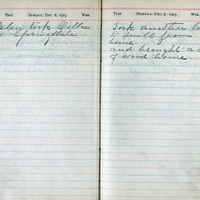 Ther. Sunday, Dec. 3, 1905 Wea.
Helen took Dillon
to Springdale
Ther. Monday, Dec. 4, 1905 Wea.
Took another lo
to Smith from
home
and brought a
of wood home